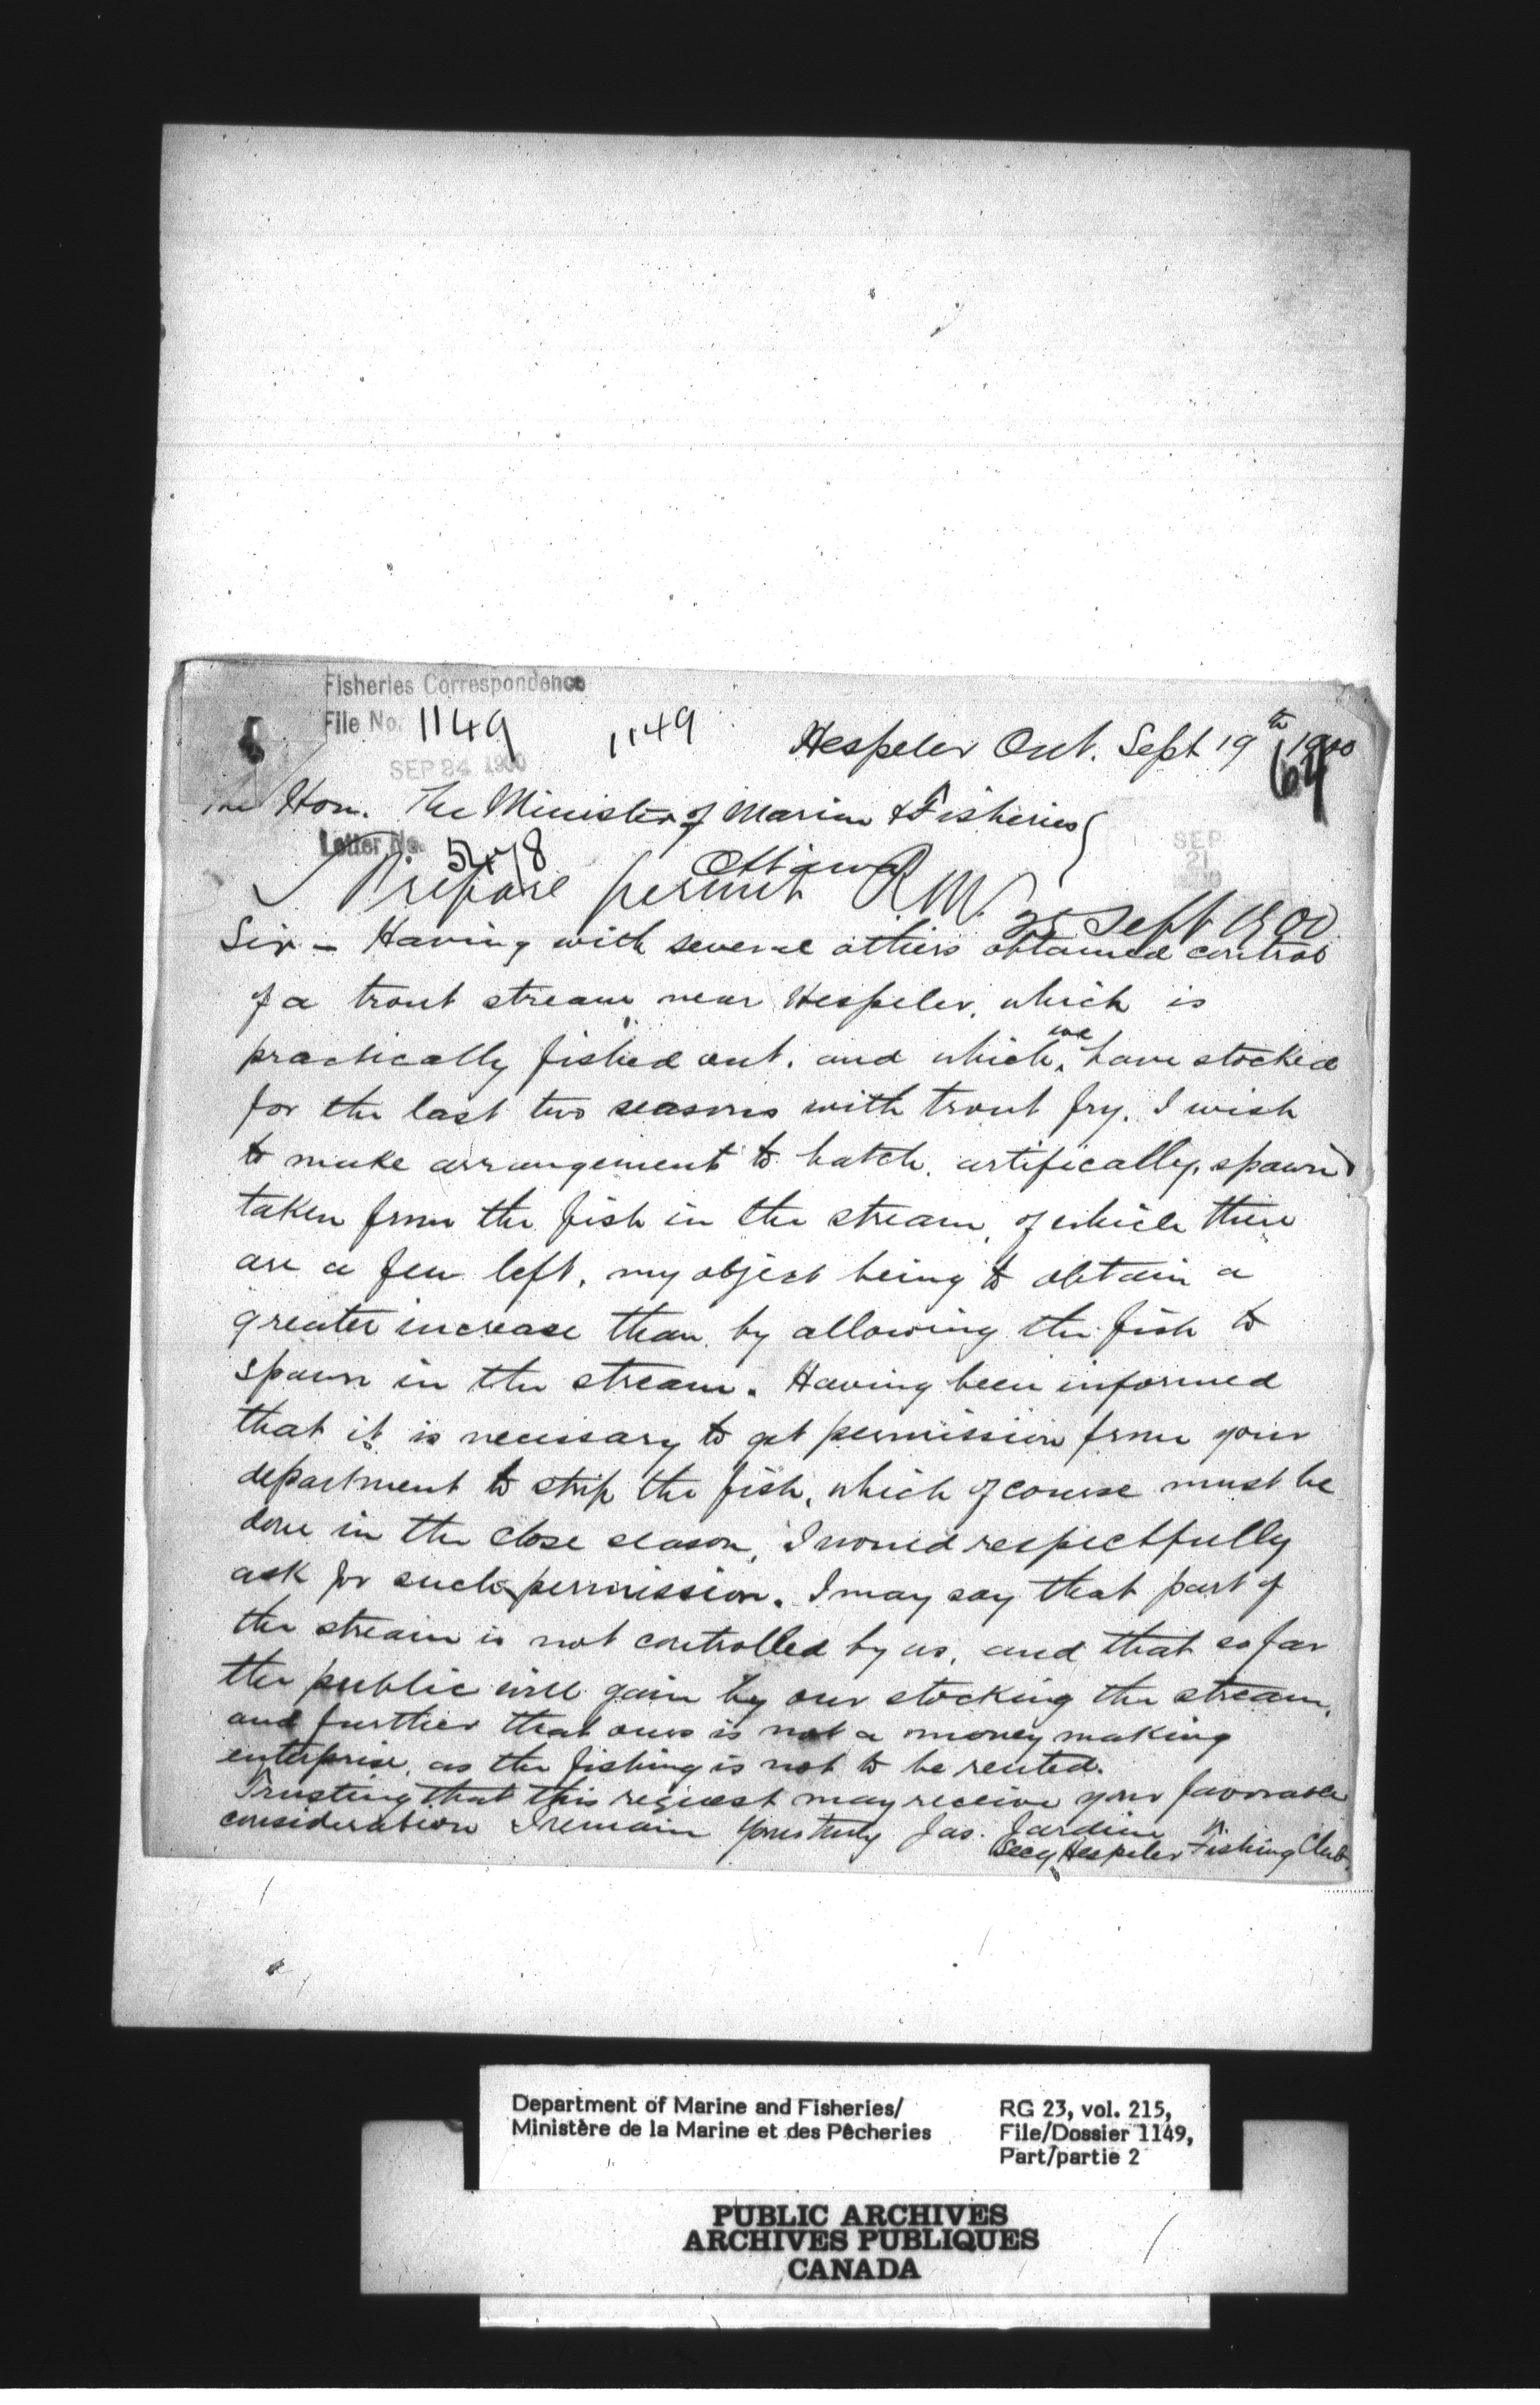 Fisheries Correspondence
File No. 1149
1149
Hespeler Ont. Sept 19th 1900
64
SEP 24 1900
The Hon. The Minister of Marine & Fisheries
Ottawa
Letter No. 5478
SEP 21
Prepare permit R.W. 25 Sept 1900
Sir - Having with several others obtained control
of a trout stream near Hespeler, which is
practically fished out, and which we have stocked
for the last two seasons with trout fry. I wish
to make arrangement to hatch, artifically, spawn
taken from the fish in the stream, of which there
are a few left, my object being to obtain a
greater increase than by allowing the fish to
spawn in the stream. Having been informed
that it is necessary to get permission from your
department to strip the fish, which of course must be
done in the close season, I would respectfully
ask for such permission. I may say that part of
the stream is not controlled by us, and that so far
the public will gain by our stocking the stream,
and further that ours is not a money making
enterprise, as the fishing is not to be rented.
Trusting that this request may receive your favorable
consideration I remain Yours truly Jas. Jardine
Secy Hespeler Fishing Club.
Department of Marine and Fisheries/
Ministère de la Marine et des Pêcheries
RG 23, vol. 215,
File/Dossier 1149,
Part/partie 2
PUBLIC ARCHIVES
ARCHIVES PUBLIQUES
CANADA